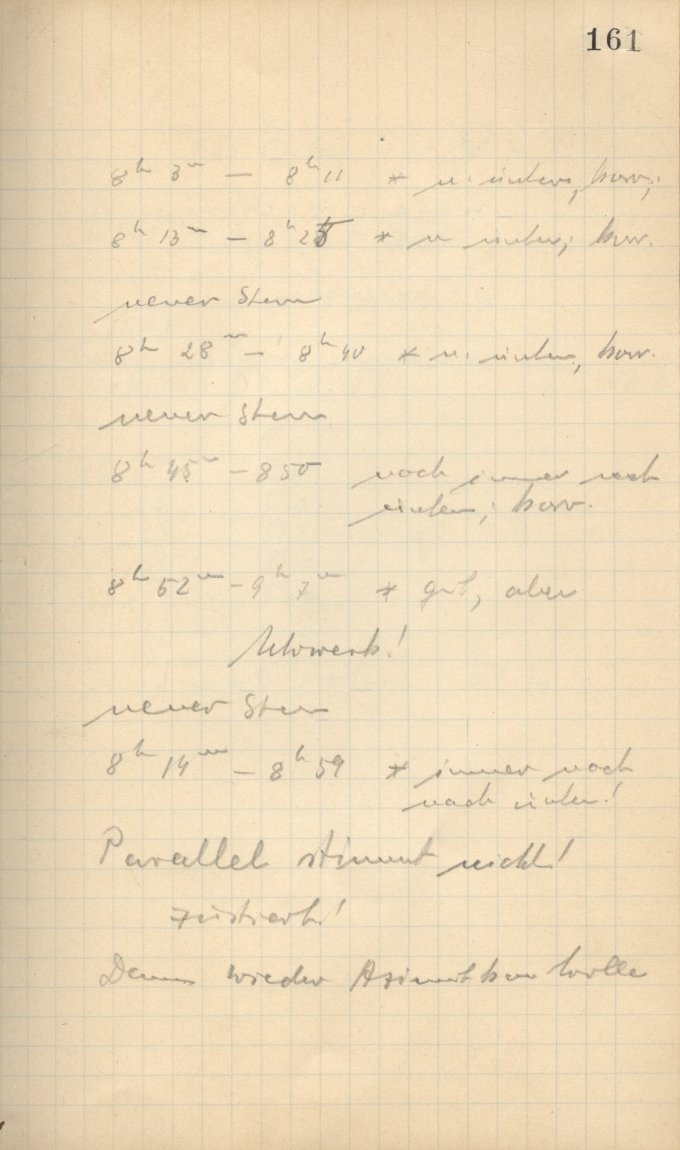 161
8h 3m — 8h 11 * n. unten, korr.;
8h 13m — 8h 25 * n unten; korr.
neuer Stern
8h 28m — 8h 40 * n. unten, korr.
neuer Stern
8h 45m — 8 50 noch immer nach
unten; korr.
8h 52m — 9h 7m * gut, aber
Uhrwerk!
neuer Stern
8h 14m — 8h 59 * immer noch
nach unten!
Parallel stimmt nicht!
Dann wieder Azimutkontrolle